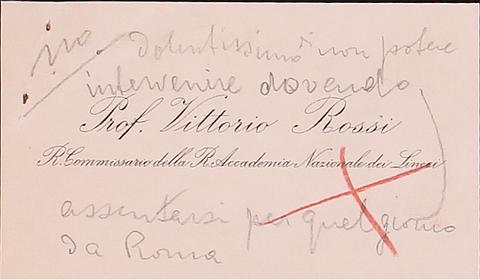 no Dolentissimo di non potere
intervenire dovendo
Prof. Vittorio Rossi
R. Commissario della R. Accademia Nazionale dei Lincei
assentarsi per quel giorno
da Roma